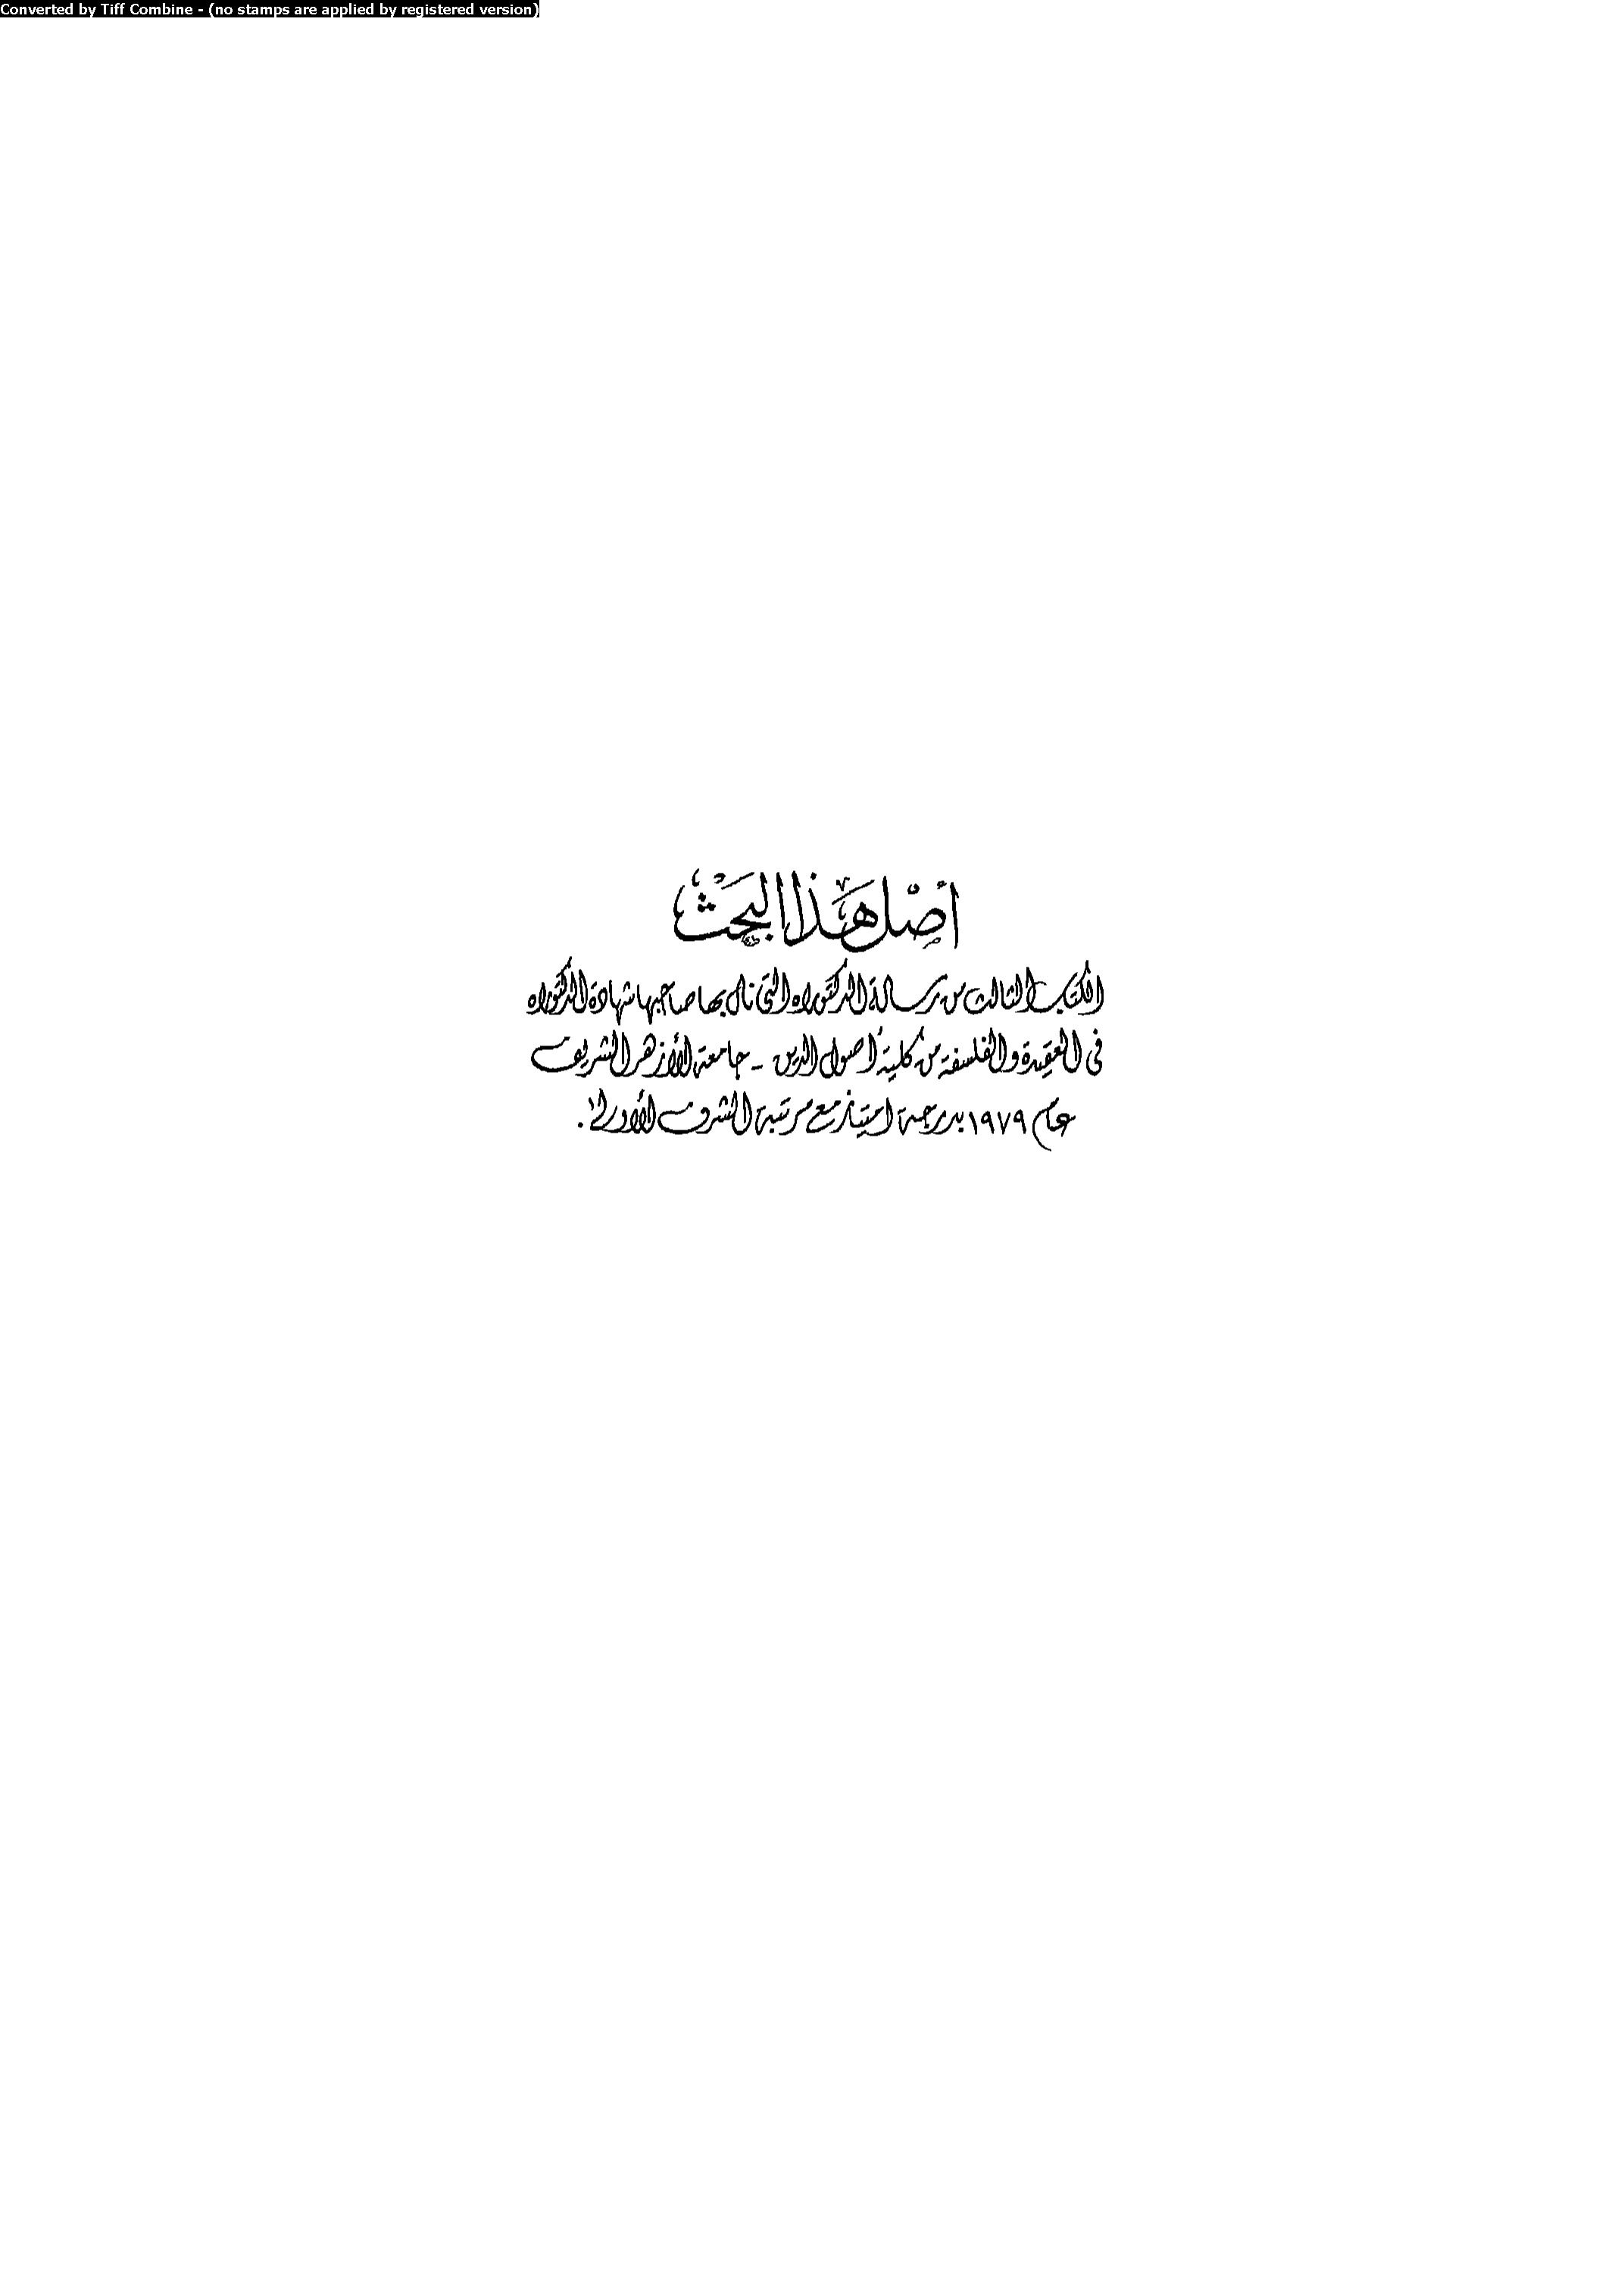 Converted by Tiff Combine - (no stamps are applied by registered version)
أَصْل هَذا البَحَثْ
الكتاب الثالث من رسالة الدكتوراه التى نال بها صاحبها شهادة الدكتوراه
فى العقيدة والفلسفة من كلية أصول الدين - جامعة الأزهر الشريف
عام ١٩٧٩ بدرجة امتياز مع مرتبة الشرف الأولى .